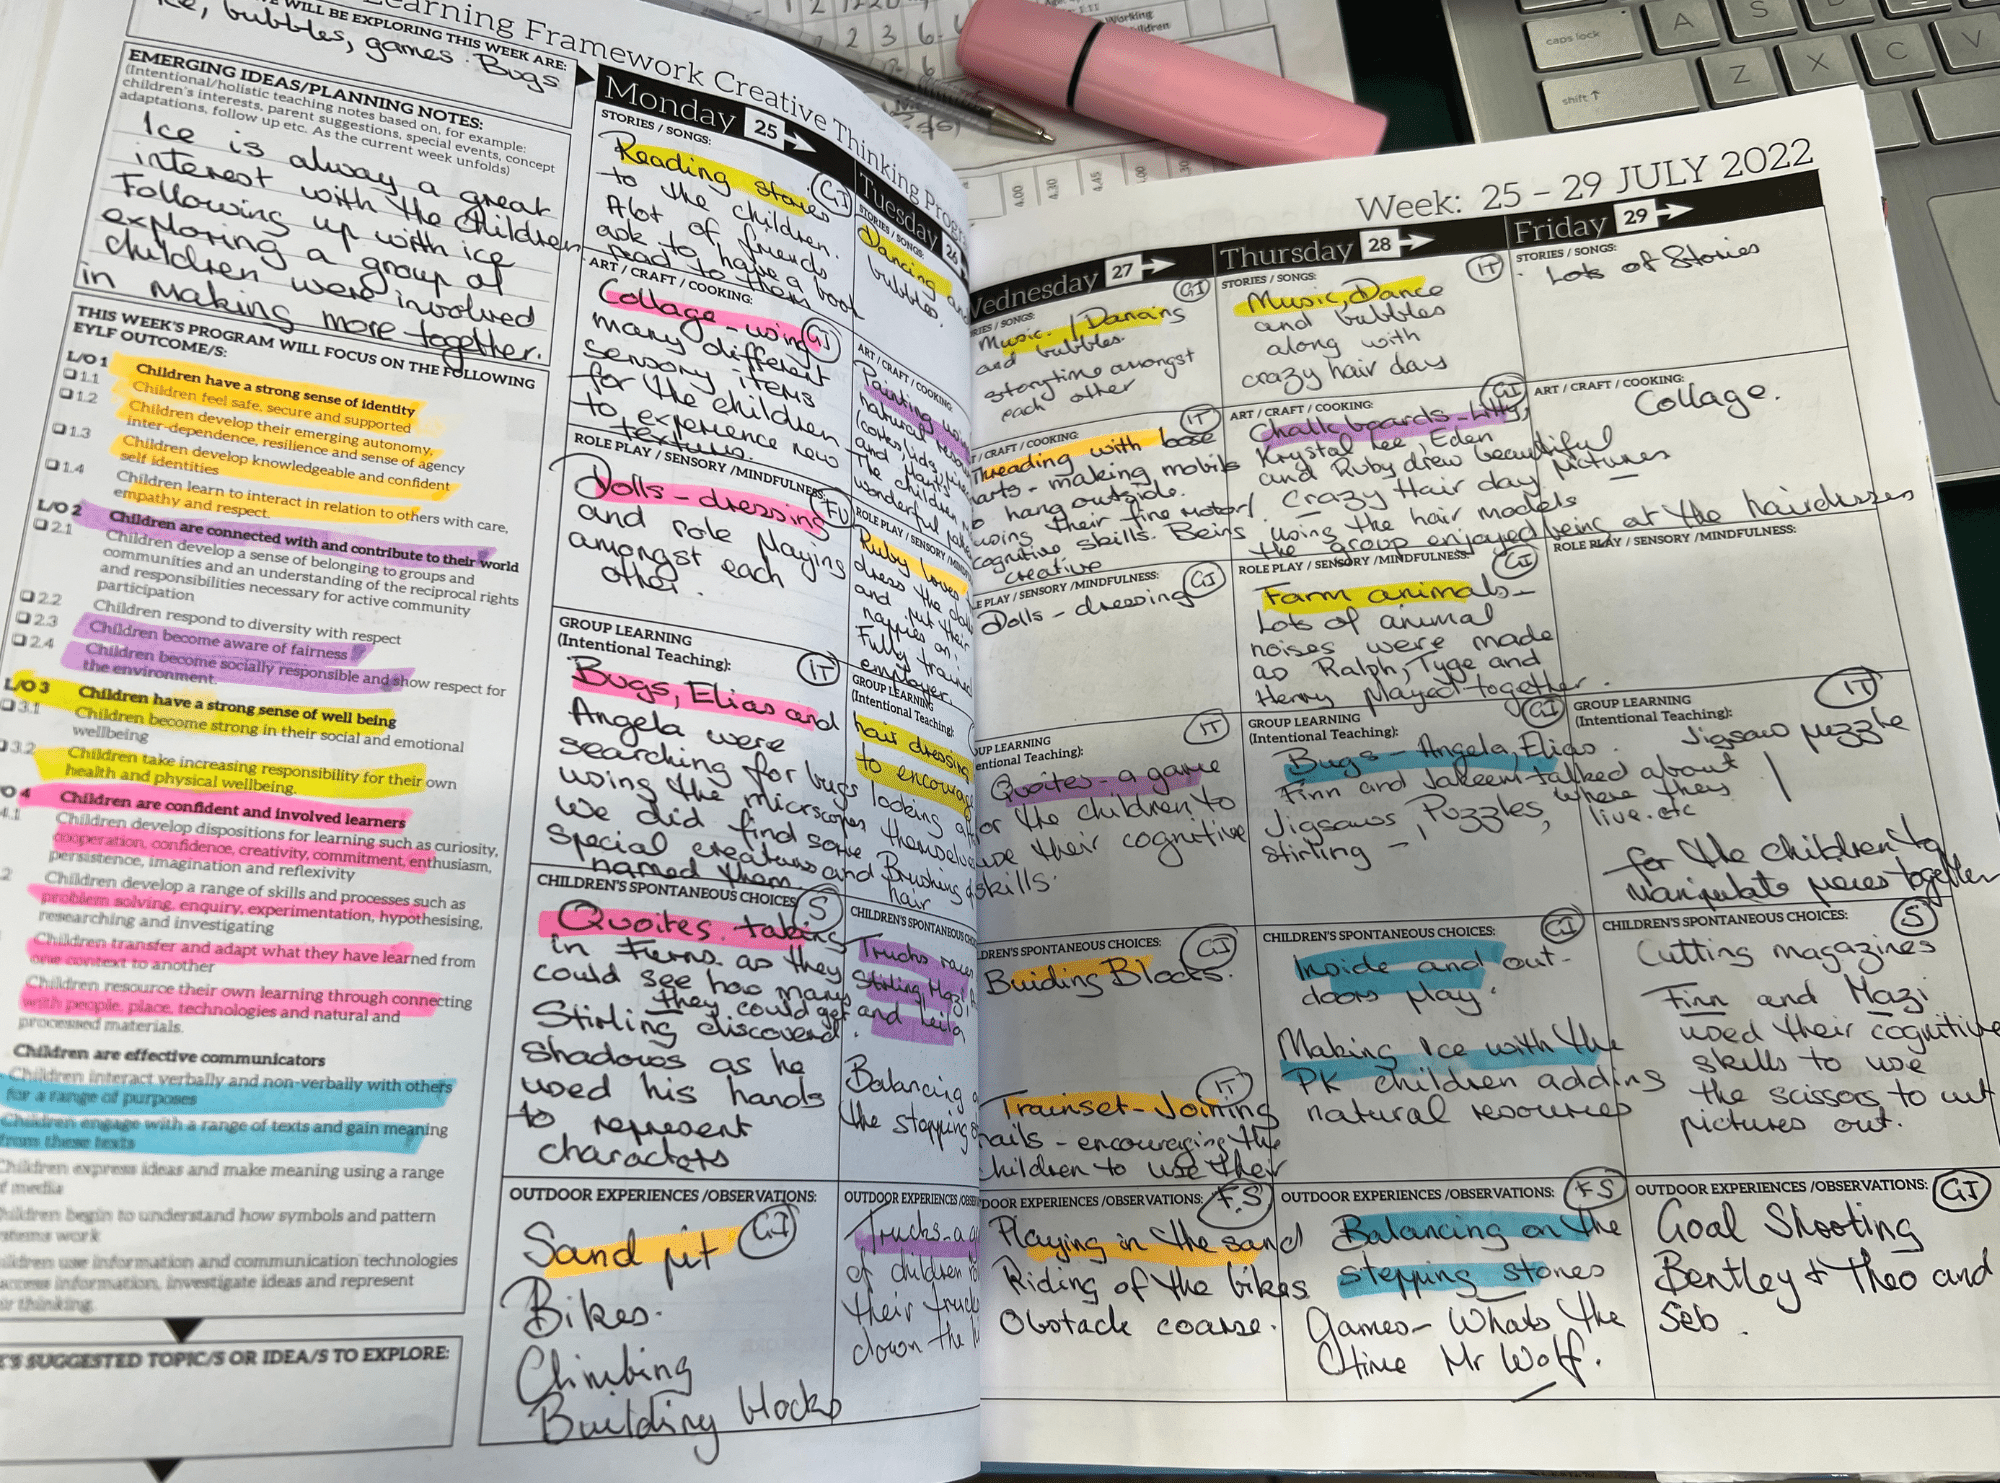 Learning Framework Creative Thinking
WILL BE EXPLORING THIS WEEK ARE:
Ice, bubbles, games. Bugs
EMERGING IDEAS/PLANNING NOTES:
(Intentional/holistic teaching notes based on, for example:
children's interests, parent suggestions, special events, concept
adaptations, follow up etc. As the current week unfolds)
Ice is always a great
interest with the children
Following up with ice
exploring a group of
children were involved
in making more together.
THIS WEEK'S PROGRAM WILL FOCUS ON THE FOLLOWING
EYLF OUTCOME/S:
L/O 1 Children have a strong sense of identity
1.1 Children feel safe, secure and supported
1.2 Children develop their emerging autonomy,
inter-dependence, resilience and sense of agency
1.3 Children develop knowledgeable and confident
self identities
1.4 Children learn to interact in relation to others with care,
empathy and respect.
L/O 2 Children are connected with and contribute to their world
2.1 Children develop a sense of belonging to groups and
communities and an understanding of the reciprocal rights
and responsibilities necessary for active community
participation
2.2 Children respond to diversity with respect
2.3 Children become aware of fairness
2.4 Children become socially responsible and show respect for
the environment.
L/O 3 Children have a strong sense of well being
3.1 Children become strong in their social and emotional
wellbeing
3.2 Children take increasing responsibility for their own
health and physical wellbeing.
O 4 Children are confident and involved learners
4.1 Children develop dispositions for learning such as curiosity,
cooperation, confidence, creativity, commitment, enthusiasm,
persistence, imagination and reflexivity
2 Children develop a range of skills and processes such as
problem solving, enquiry, experimentation, hypothesising,
researching and investigating
Children transfer and adapt what they have learned from
one context to another
Children resource their own learning through connecting
with people, place, technologies and natural and
processed materials.
Children are effective communicators
Children interact verbally and non-verbally with others
for a range of purposes
Children engage with a range of texts and gain meaning
from these texts
Children express ideas and make meaning using a range
of media
Children begin to understand how symbols and pattern
systems work
Children use information and communication technologies
access information, investigate ideas and represent
their thinking.
SUGGESTED TOPIC/S OR IDEA/S TO EXPLORE:
Monday 25
STORIES / SONGS:
Reading stories GI
to the children.
Alot of friends
ask to have a book
read to them
ART / CRAFT / COOKING:
Collage - using GI
many different
sensory items
for the children
to experience new
textures.
ROLE PLAY / SENSORY /MINDFULNESS:
Dolls - dressing FU
and role playing
amongst each
other.
GROUP LEARNING
(Intentional Teaching): IT
Bugs, Elias and
Angela were
searching for bugs
using the microscopes
We did find some
special creatures and
named them
CHILDREN'S SPONTANEOUS CHOICES S
Quoites. taking
in turns. as they
could see how many
they could get
Stirling discovered
shadows as he
used his hands
to represent
characters
OUTDOOR EXPERIENCES /OBSERVATIONS:
Sand pit GI
Bikes.
Climbing
Building blocks
Tuesday 26
STORIES / SONGS:
Dancing
bubbles.
ART / CRAFT / COOKING:
Painting
natural
and
The children
wonderful
ROLE PLAY / SENSORY /
Ruby loves
dress the
and put their
nappies on.
Fully trained
employer
GROUP LEARNING
(Intentional Teaching):
hair dressing
to encourage
looking
themselves
Brushing
hair
CHILDREN'S SPONTANEOUS
Trucks
Stirling, Mazi,
and Leila
Balancing
the stepping
OUTDOOR EXPERIENCES
Trucks - a
of children
their
down the
Week: 25 – 29 JULY 2022
Wednesday 27
STORIES / SONGS: GI
Music / Dancing
and bubbles.
storytime amongst
each other
CRAFT / COOKING: IT
Threading with loose
parts - making mobile
to hang outside.
using their fine motor/
cognitive skills. Being
creative
PLAY / SENSORY /MINDFULNESS: GI
Dolls - dressing
GROUP LEARNING IT
(Intentional Teaching):
Quoites - a game
for the children to
use their cognitive
skills.
CHILDREN'S SPONTANEOUS CHOICES: GI
Buiding Blocks.
IT
Trainset - Joining
rails - encouraging the
children to use their
OUTDOOR EXPERIENCES /OBSERVATIONS: F.S
Playing in the sand
Riding of the bikes
Obstacle coarse.
Thursday 28
STORIES / SONGS: IT
Music, Dance
and bubbles
along with
crazy hair day
ART / CRAFT / COOKING: GI
Chalk boards -
Krystal Lee, Eden
and Ruby drew beautiful
pictures
Crazy Hair day
using the hair models
the group enjoyed being at the hairdresses
ROLE PLAY / SENSORY /MINDFULNESS: GI
Farm animals -
Lots of animal
noises were made
as Ralph, Tyge and
Henry played together.
GROUP LEARNING GI
(Intentional Teaching):
Bugs - Angela, Elias
Finn and Jakeem talked about
where they
live. etc
Jigsaws, Puzzles,
stirling -
CHILDREN'S SPONTANEOUS CHOICES: GI
Inside and out-
doors play.
Making Ice with the
PK children adding
natural resources
OUTDOOR EXPERIENCES /OBSERVATIONS: F.S
Balancing on the
stepping stones
Games - Whats the
time Mr Wolf.
Friday 29
STORIES / SONGS:
Lots of Stories
ART / CRAFT / COOKING:
Collage.
ROLE PLAY / SENSORY /MINDFULNESS:
GROUP LEARNING IT
(Intentional Teaching):
Jigsaw puzzle
for the children to
manipulate pieces together
CHILDREN'S SPONTANEOUS CHOICES: S
Cutting magazines
Finn and Mazi
used their cognitive
skills to use
the scissors to cut
pictures out.
OUTDOOR EXPERIENCES /OBSERVATIONS: GI
Goal Shooting
Bentley + Theo and
Seb.
caps lock
shift
A
S
D
Z
X
C
V
4.00
4.30
4.45
Working